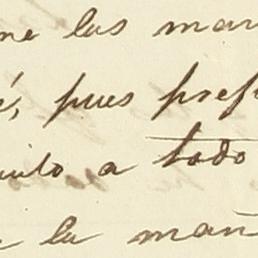 me las man
é, pues pref
uito a todo
e la mañ